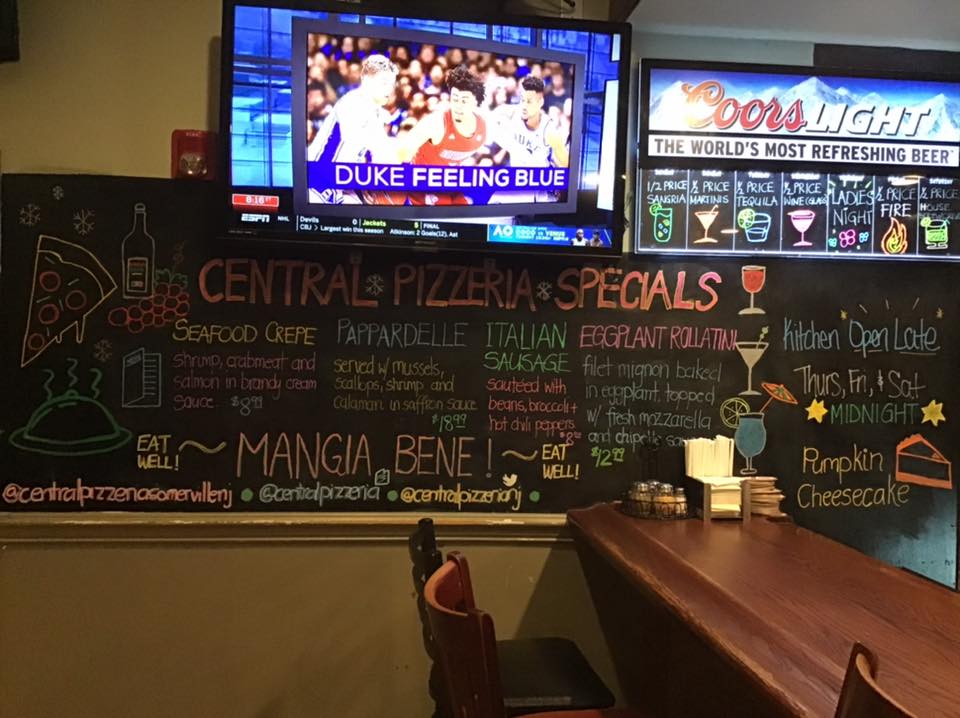 DUKE FEELING BLUE
8:16 ET
ESPN
NHL
Devils 0 | Jackets 5 | FINAL
CBJ > Largest win this season Atkinson: 2 Goals(12), Ast
AO
Coors LIGHT
THE WORLD'S MOST REFRESHING BEER
1/2 PRICE SANGRIA
½ PRICE MARTINIS
TEQUILA
½ PRICE WINE (GLASS)
LADIES NIGHT
½ PRICE FIRE
HOUSE
CENTRAL PIZZERIA SPECIALS
SEAFOOD CREPE
shrimp, crabmeat and
salmon in brandy cream
sauce $8.99
PAPPARDELLE
served w/ mussels,
scallops, shrimp and
calamari in saffron sauce
$18.99
ITALIAN
SAUSAGE
sautéed with
beans, broccoli +
hot chili peppers
EGGPLANT ROLLATINI
filet mignon baked
in eggplant, topped
w/ fresh mozzarella
and chipotle
$12.99
Kitchen Open Late
Thurs, Fri, & Sat
MIDNIGHT
Pumpkin
Cheesecake
EAT
WELL!
MANGIA BENE!
EAT
WELL!
@centralpizzeriasomervillenj • @centralpizzeria • @centralpizzerianj